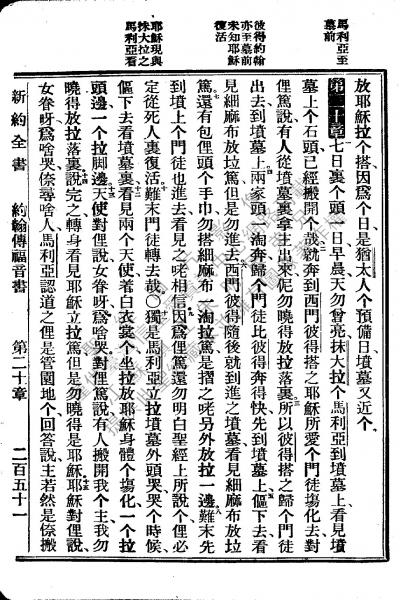 馬利亞至
墓前
彼得約翰
亦至墓前
未知耶穌
復活
耶穌現與
抹大拉之
馬利亞看
放耶穌拉个搭、因爲个日是猶太人个預備日、墳墓又近个、
第二十章 七日裏个頭一日早晨、天勿曾亮、抹大拉个馬利亞到墳墓上、看見墳
墓上个石頭已經搬開个哉、就奔到西門彼得搭之耶穌所愛个門徒塲化去、對
俚篤說、有人從墳墓裏拿主出來、伲勿曉得放拉落裏、所以彼得搭之歸个門徒
出去、到墳墓上、兩家頭一淘奔、歸个門徒比彼得奔得快、先到墳墓上、傴下去看
見細麻布放垃篤、但是勿進去、西門彼得隨後就到、進之墳墓、看見細麻布放垃
篤、還有包俚頭个手巾、勿搭細麻布一淘拉篤、是摺之咾另外放拉一邊、難末先
到墳墓上个門徒也進去、看見之咾相信、因爲俚篤還勿明白聖經上所說个、俚必
定從死人裏復活、難末門徒轉去哉、〇獨是馬利亞立拉墳墓外頭哭、哭个時候、
傴下去看墳墓裏、看見兩个天使、着白衣裳个、坐拉放耶穌身體个塲化、一个拉
頭邊、一个拉脚邊、天使對俚說、女眷呀、爲啥哭、對俚篤說、有人搬開我个主、我勿
曉得放拉落裏、說完之、轉身看見耶穌立拉篤、但是勿曉得是耶穌、耶穌對俚說、
女眷呀、爲啥哭、倷尋啥人、馬利亞認道之俚是管園地个、回答說、主若然是倷搬
新約全書 約翰傳福音書 第二十章 二百五十一